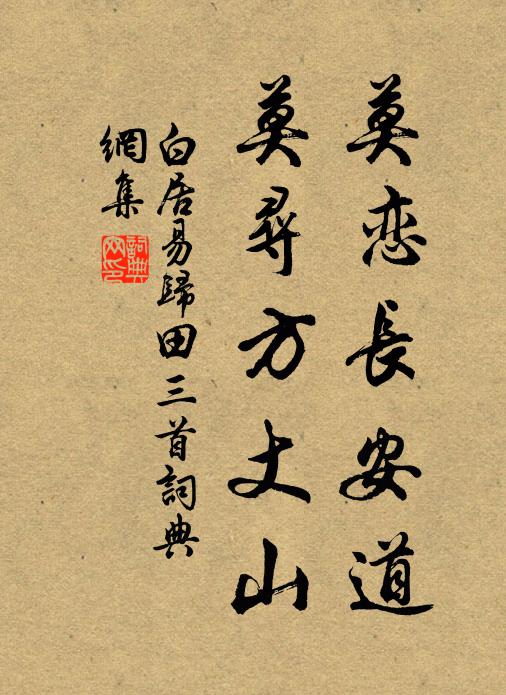 莫恋長安道
莫尋方丈山
白居易歸田三首詞典
網集
詞典
网印